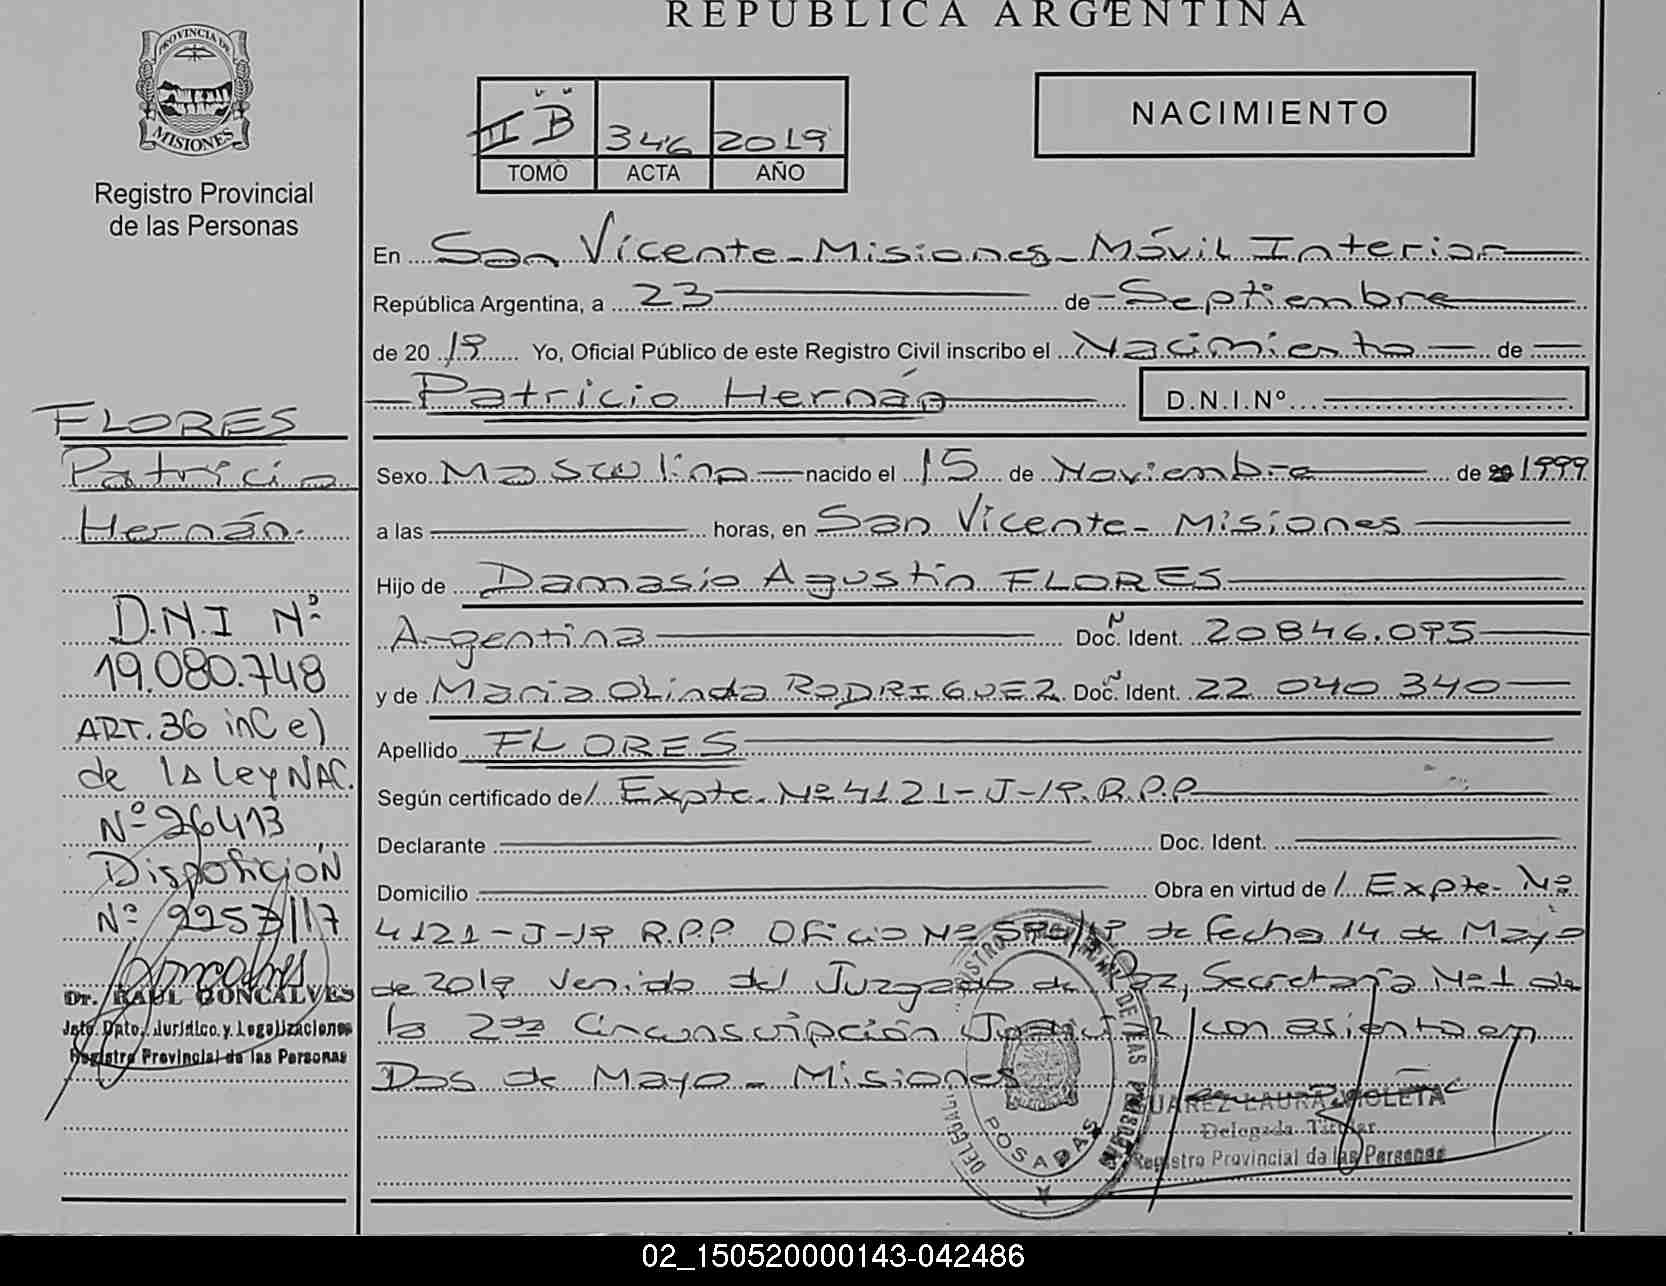 REPUBLICA ARGENTINA
PROVINCIA DE
MISIONES
Registro Provincial
de las Personas
II B 346 2019
TOMO ACTA AÑO
NACIMIENTO
En San Vicente - Misiones - Móvil Interior
República Argentina, a 23 de Septiembre
de 20 19 Yo, Oficial Público de este Registro Civil inscribo el Nacimiento de
Patricio Hernán D.N.I.Nº
Sexo Masculino nacido el 15 de Noviembre de 1999
a las horas, en San Vicente - Misiones
Hijo de Damasio Agustín FLORES
Argentina Doc. Ident. Nº 20846.095
y de Maria Olinda RODRIGUEZ Doc. Ident. Nº 22 040 340
Apellido FLORES
Según certificado de/ Expte. Nº 4121-J-19. R.P.P
Declarante Doc. Ident.
Domicilio Obra en virtud de / Expte. Nº
4121-J-19 R.P.P Oficio Nº de fecha 14 de Mayo
de 2019 venido del Juzgado de Paz, Secretaría Nº 1 de
la 2da Circunscripción Judicial con asiento en
Dos de Mayo - Misiones
FLORES
Patricio
Hernán.
D.N.I Nº
19.080.748
ART. 36 inC e)
de lA Ley NAC.
Nº 26413
Disposición
Nº 2257/17
Dr. RAUL GONCALVES
Jefe Dpto. Jurídico y Legalizaciones
Registro Provincial de las Personas
POSADAS
SUAREZ LAURA VIOLETA
Delegada Titular
Registro Provincial de las Personas
02_150520000143-042486